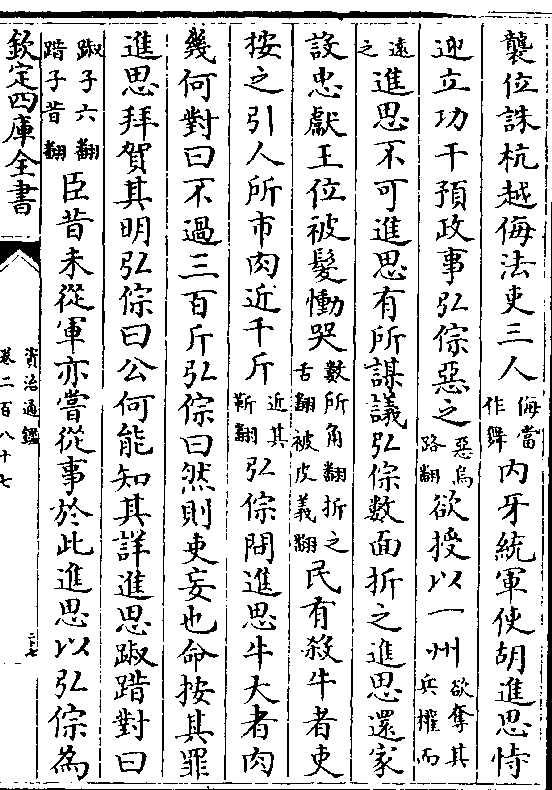 襲位誅杭越侮法吏三人侮當作舞内牙統軍使胡進思恃
迎立功干預政事弘倧惡之惡烏路翻欲授以一州欲奪其兵權而
遠之進思不可進思有所謀議弘倧數面折之進思還家
設忠獻王位被髮慟哭數所角翻折之舌翻被皮義翻民有殺牛者吏
按之引人所市肉近千斤近其靳翻弘倧問進思牛大者肉
幾何對曰不過三百斤弘倧曰然則吏妄也命按其罪
進思拜賀其明弘倧曰公何能知其詳進思踧踖對曰
踧子六翻踖子昔翻臣昔未從軍亦嘗從事於此進思以弘倧為
欽定四庫全書
資治通鑑
卷二百八十七
二十七